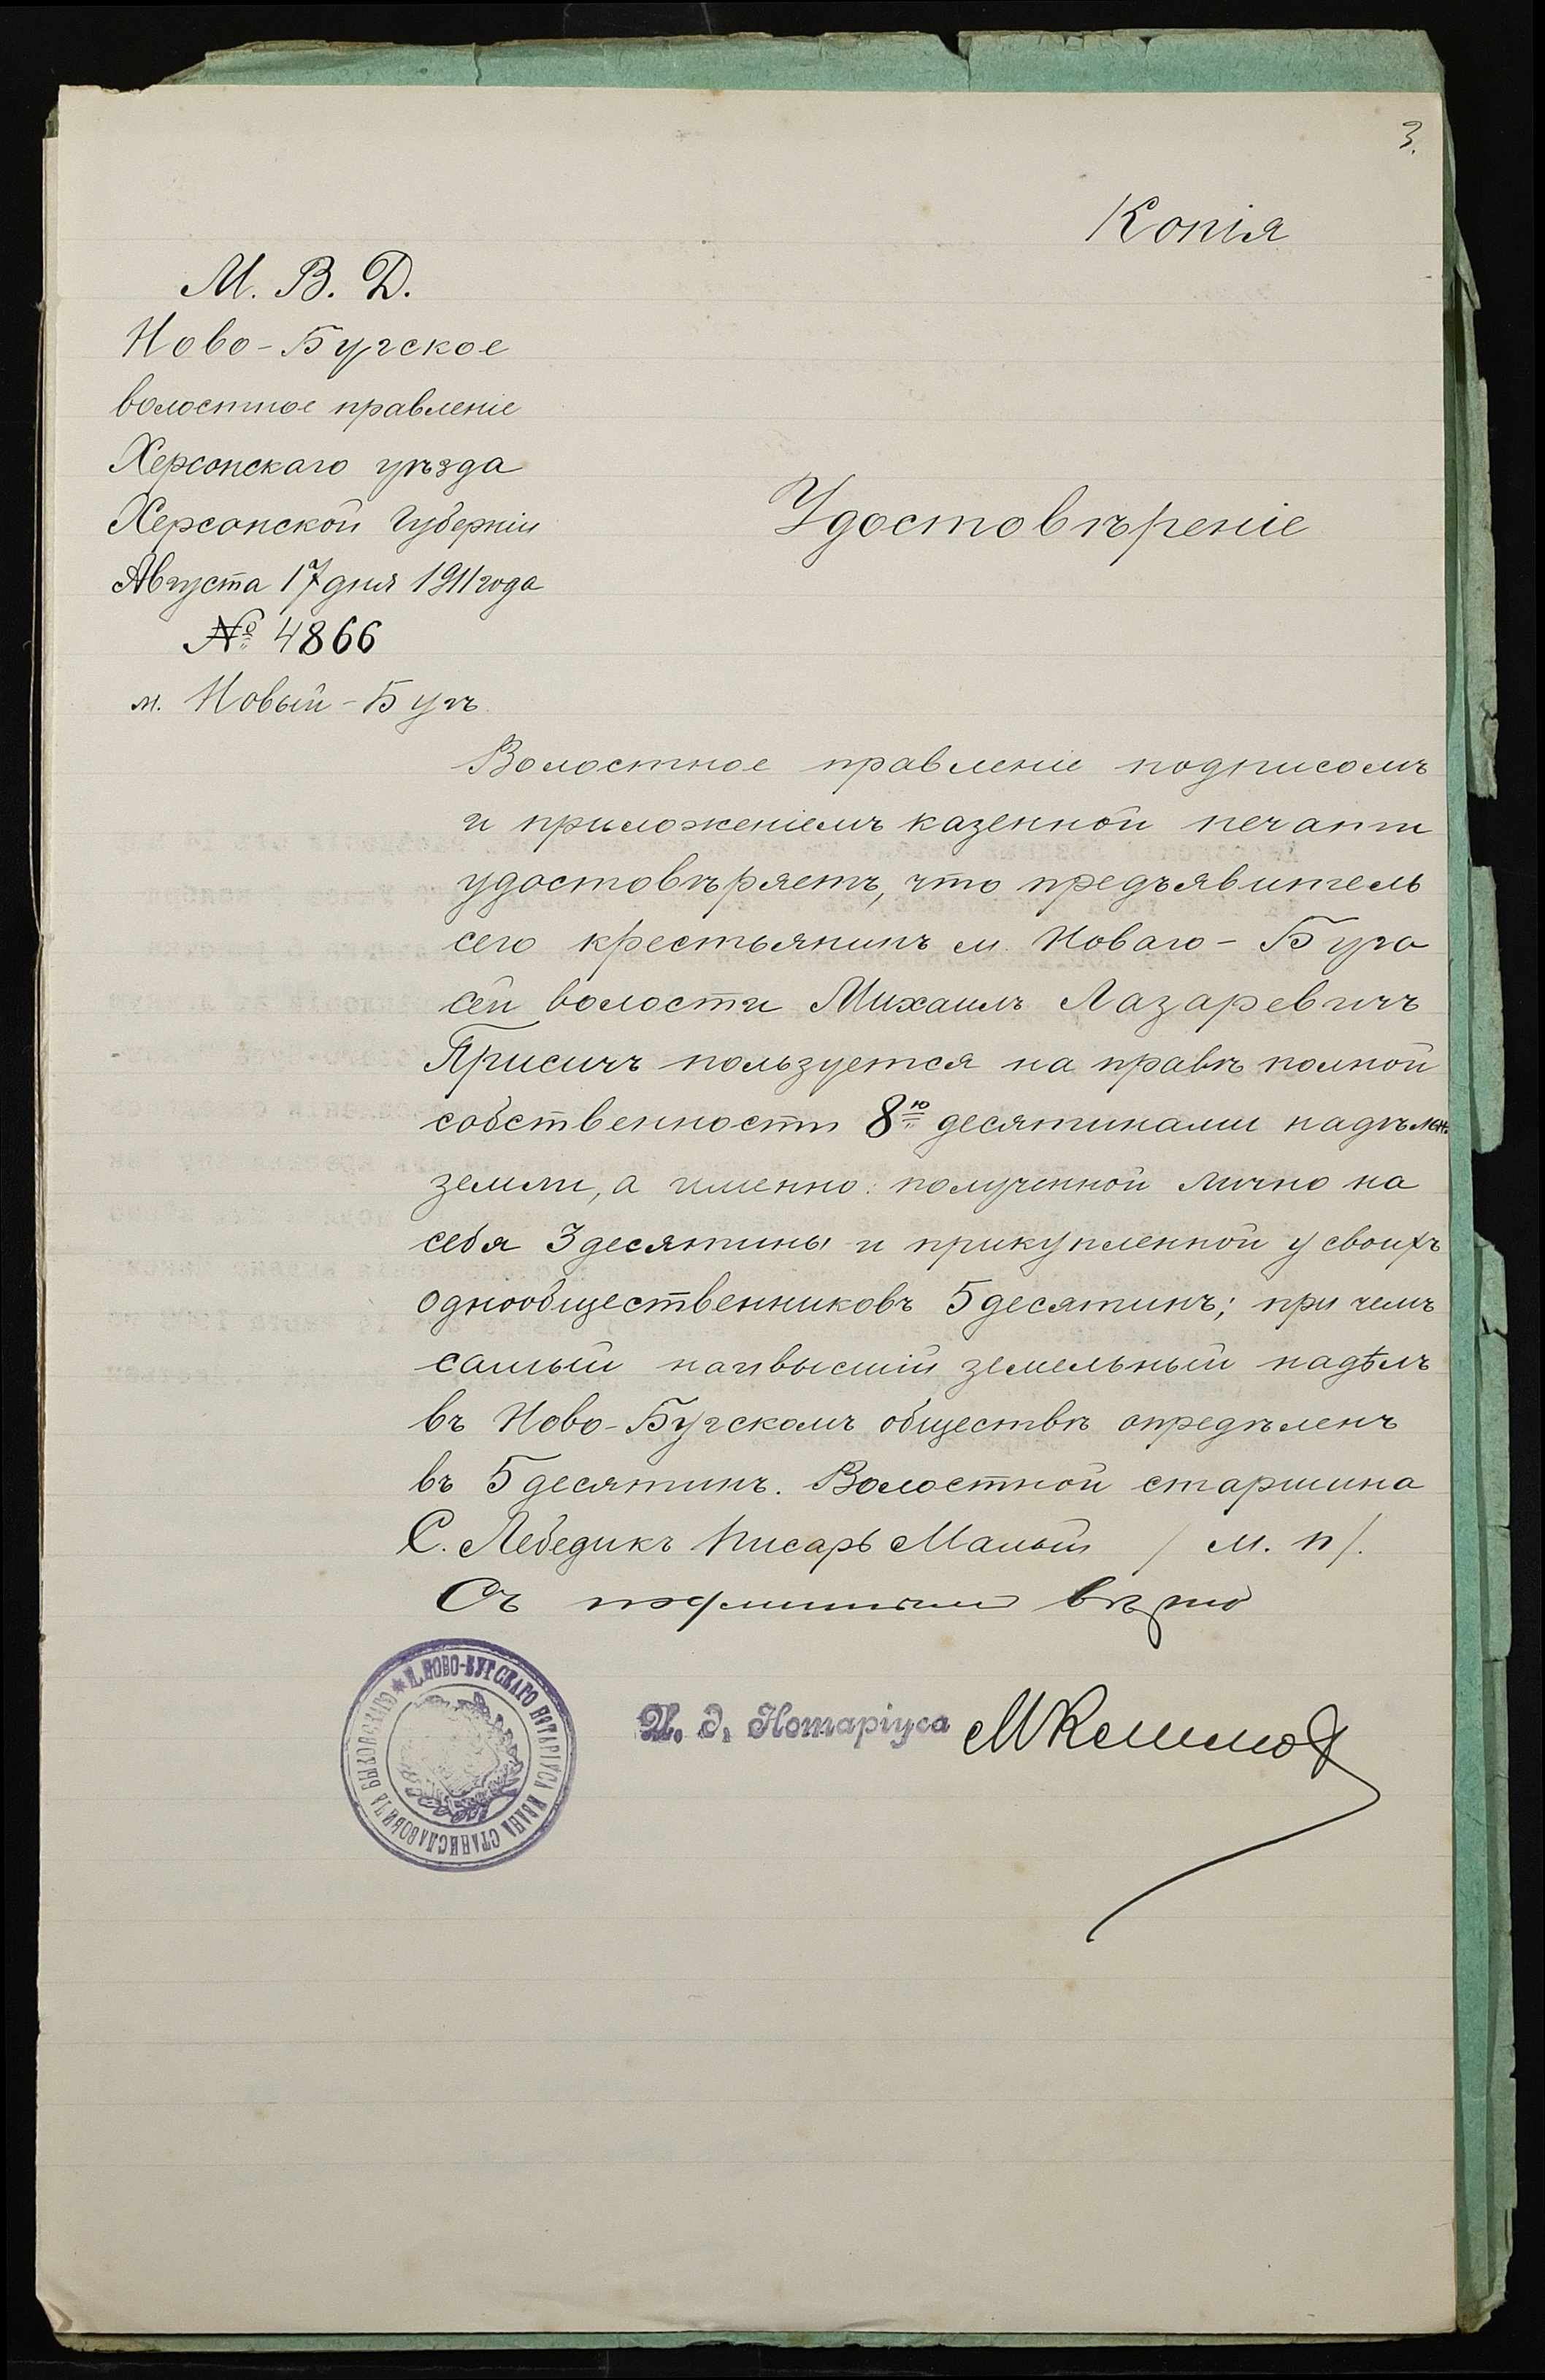 3.
Копія
М. В. Д.
Ново-Бугское
волостное правленіе
Херсонскаго уѣзда
Херсонской Губерніи
Августа 17 дня 1911 года
№ 4866
м. Новый-Бугъ
Удостовѣреніе
Волостное правленіе подписомъ
и приложеніемъ казенной печати
удостовѣряетъ, что предъявитель
сего крестьянинъ м. Новаго-Буга
сей волости Михаилъ Лазаревичъ
Присичъ пользуется на правѣ полной
собственности 8ю десятинами надѣльн.
земли, а именно: полученной лично на
себя 3 десятины и прикупленной у своихъ
однообщественниковъ 5 десятинъ; при чемъ
самый наивысшій земельный надѣлъ
въ Ново-Бугскомъ обществѣ опредѣленъ
въ 5 десятинъ. Волостной старшина
С. Лебедикъ Писарь Малый / М. П /.
Съ подлиннымъ вѣрно
И. д. Нотаріуса
* П. НОВО-БУГСКАГО НОТАРІУСА ИВАНА СТАНИСЛАВОВИЧА